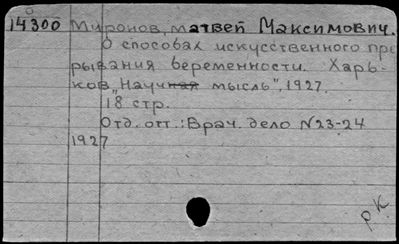 14300 Миронов, Матвей Максимович.
О способах искусственного пре
рывания беременности. Харь-
ков, „Научная мысль", 1927.
18 стр.
Отд. отт.: Врач. дело N23-24
1927
р. К.